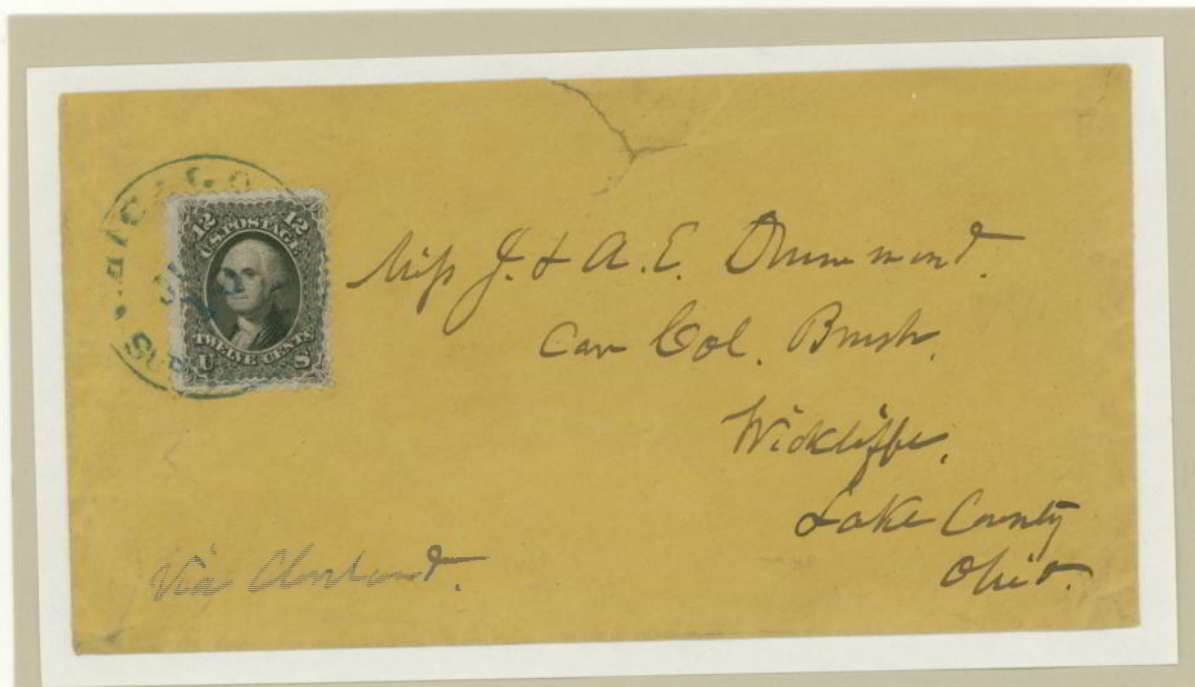 CHICAGO
12 12
U.S. POSTAGE
TWELVE CENTS
U S
Miss J. & A. E. Drummond.
Care Col. Brush.
Wickliffe,
Lake County
Ohio.
Via Cleveland.